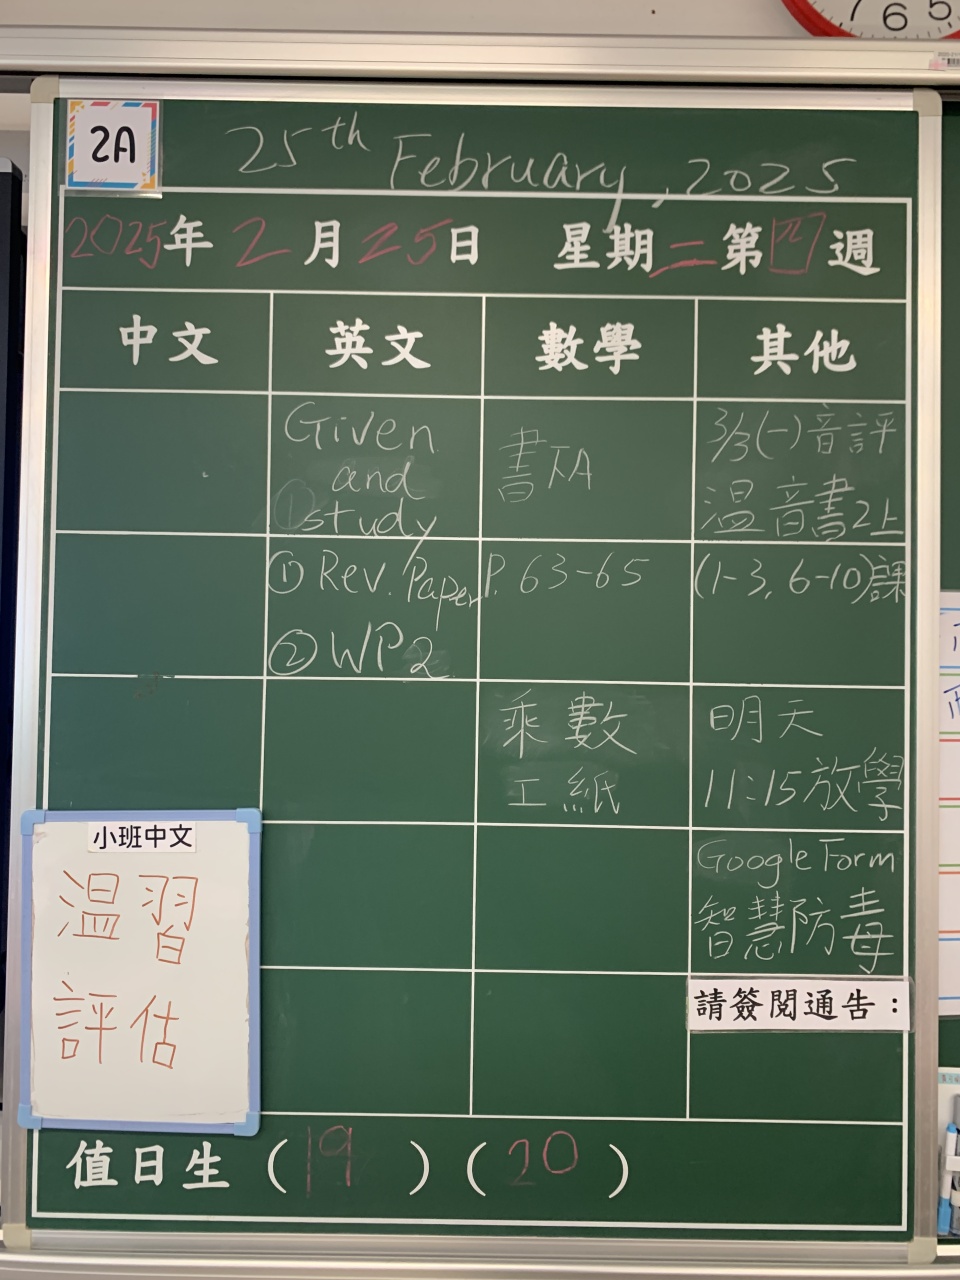 7 6 5
2A
25th February, 2025
2025年2月25日 星期二第四週
中文
英文
數學
其他
Given
and
①study
書下A
3/3(一)音評
溫音書2上
① Rev. Paper
② WP2
P. 63-65
(1-3, 6-10)課
乘數
工紙
明天
11:15放學
Google Form
智慧防毒
小班中文
溫習
評估
請簽閱通告：
值日生（19）（20）